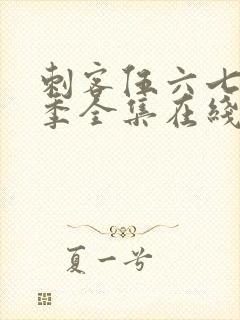 刺客伍六七
季全集在线
夏一号